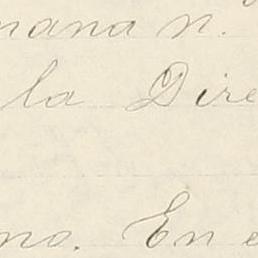 mana n.
la Dire
no. En e